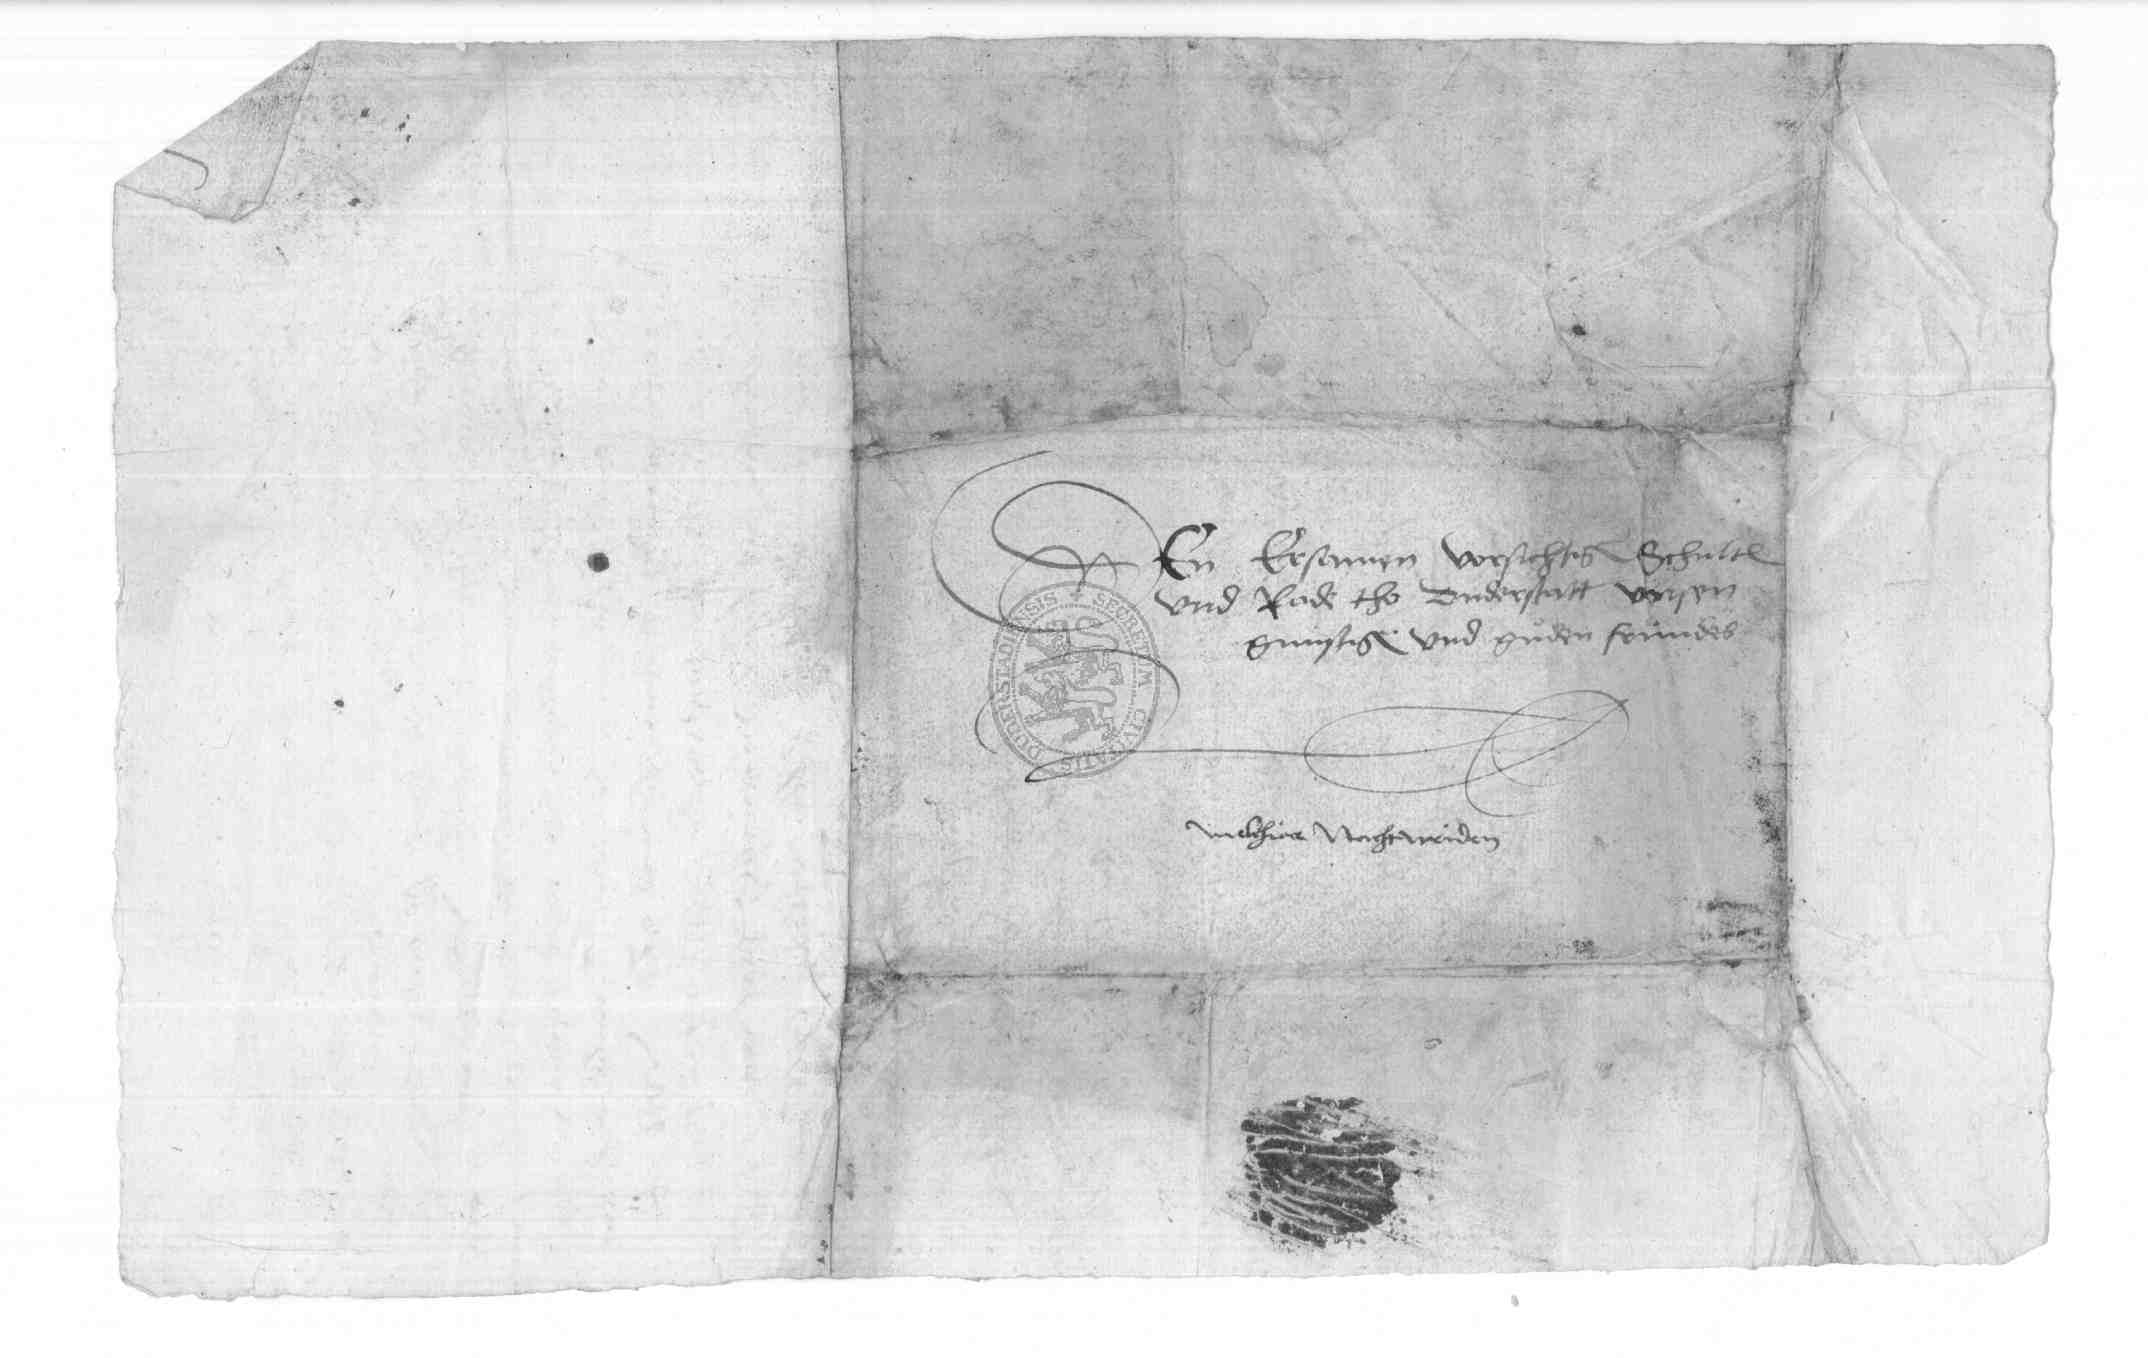 DEn Ersamen vorsichtig Schult
vnd Rade tho Duderstatt vnsen
gunstig vnd guden frundes
SECRETUM CIVITATIS DUDERSTADENSIS
Melchior Nachtweiden